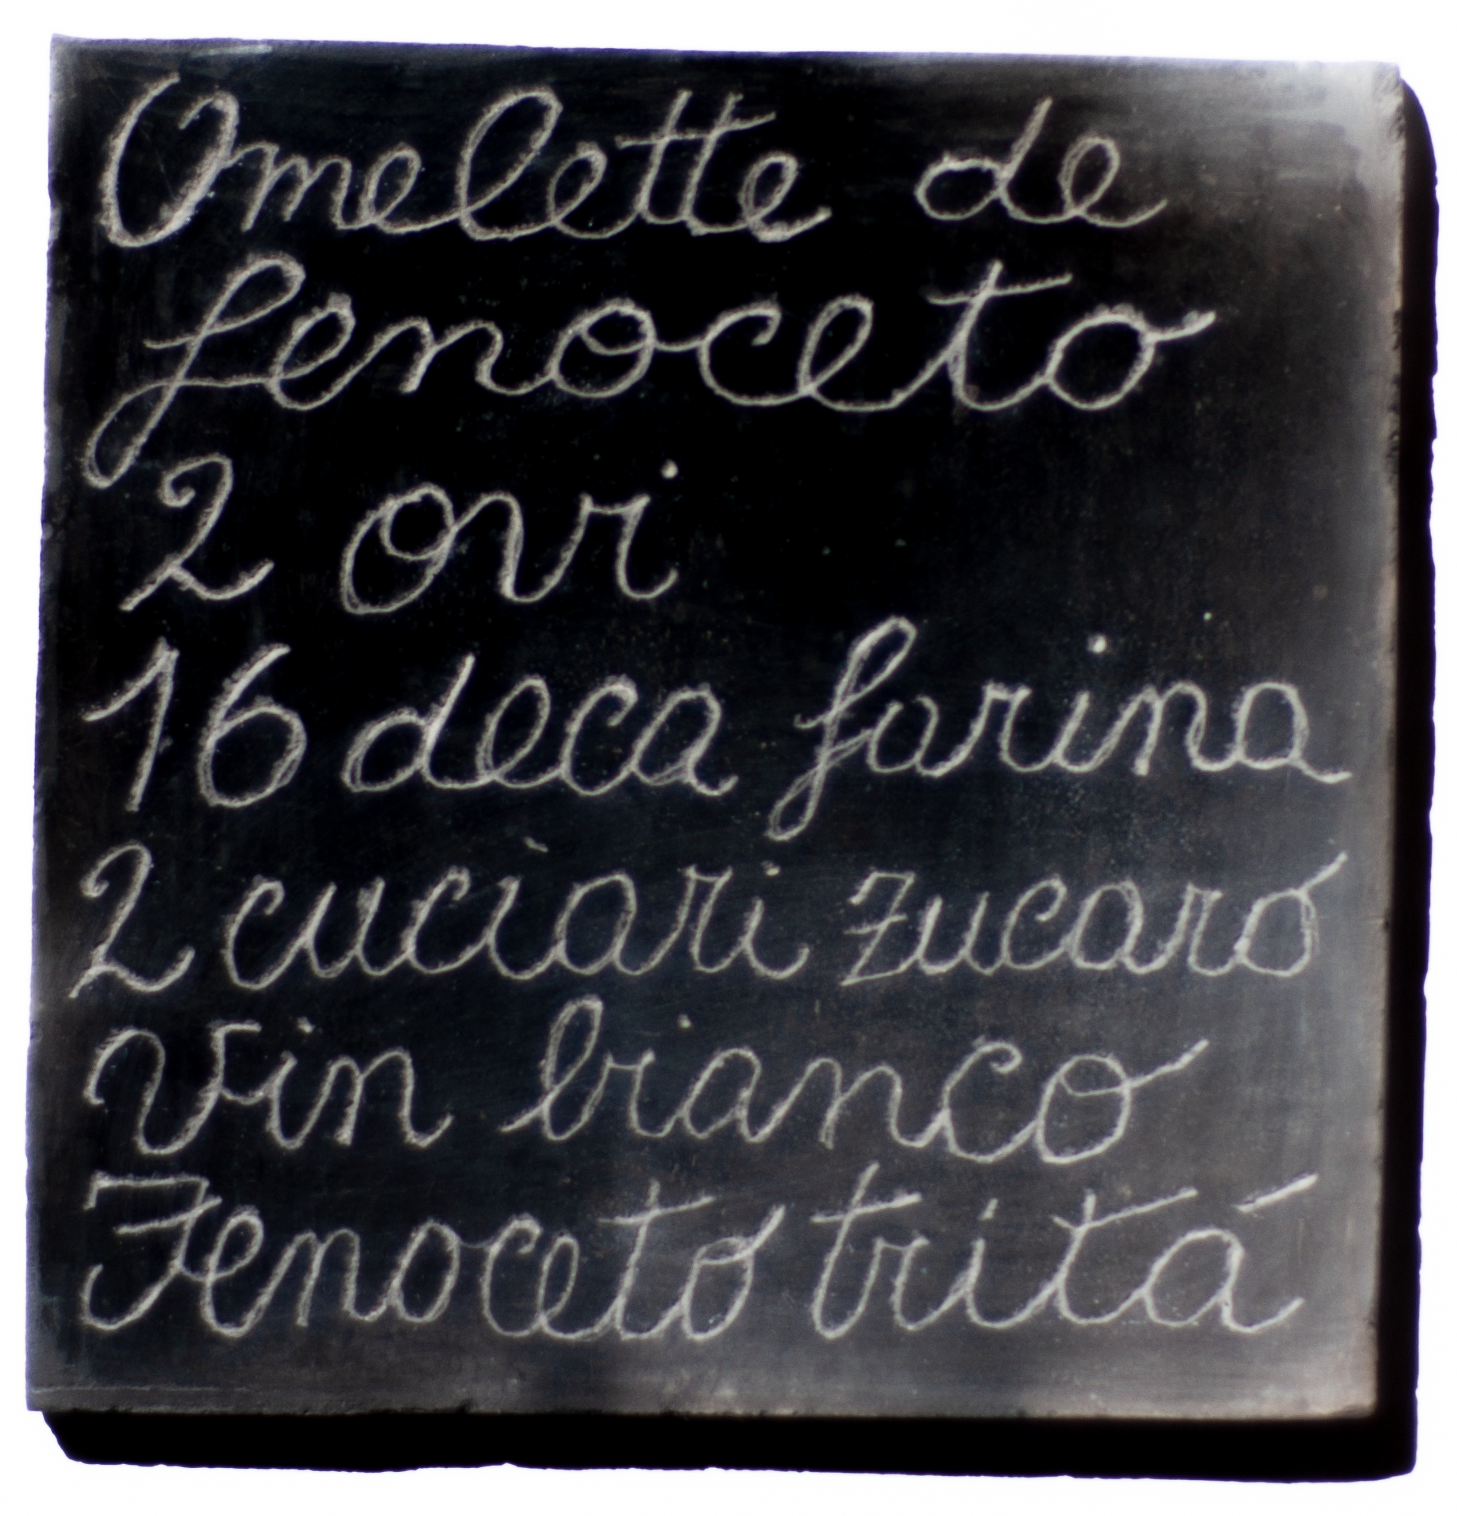 Omelette de
fenoceto
2 ovi
16 deca farina
2 cuciari zucaro
vin bianco
Fenoceto tritá